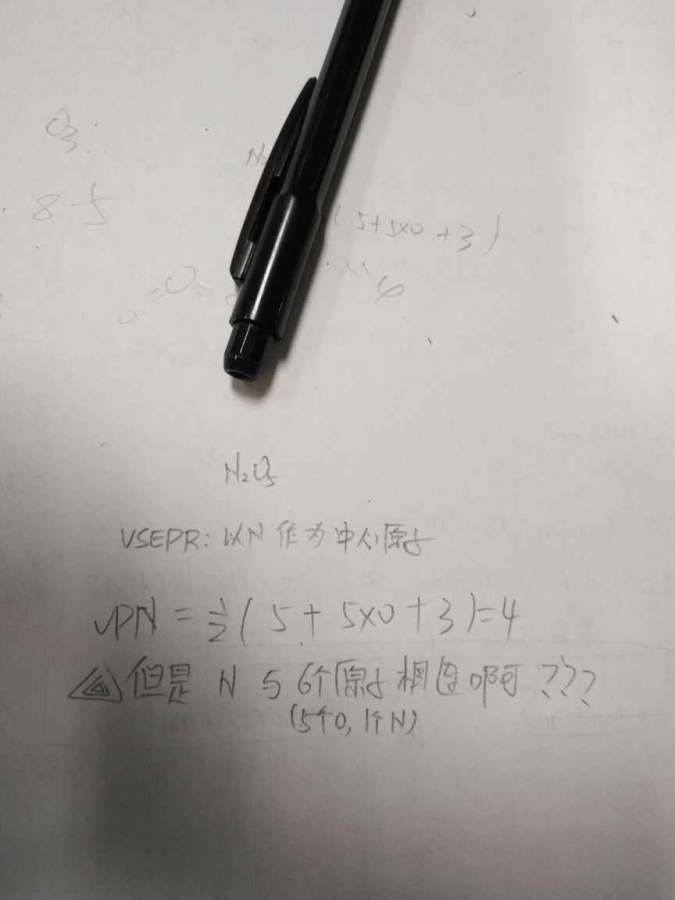 O₃
8-5
(5+5×0+3)
N₂O₅
VSEPR: 以N作为中心原子
VPN = ½(5+5×0+3)=4
但是 N 与 6个原子相连啊???
(5个O, 1个N)